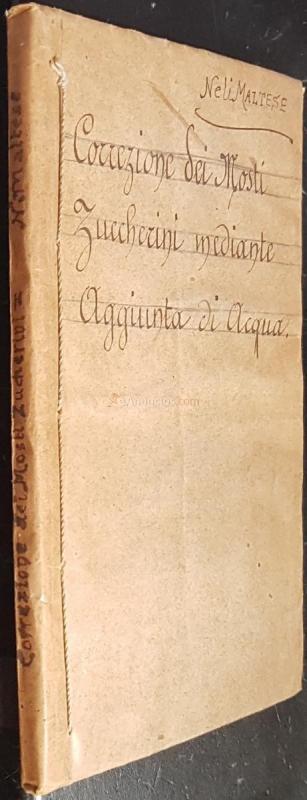 Neli MALTESE
Correzione dei Mosti
Zuccherini mediante
Aggiunta di Acqua.
Correzione dei Mosti Zuccherini = N. Maltese